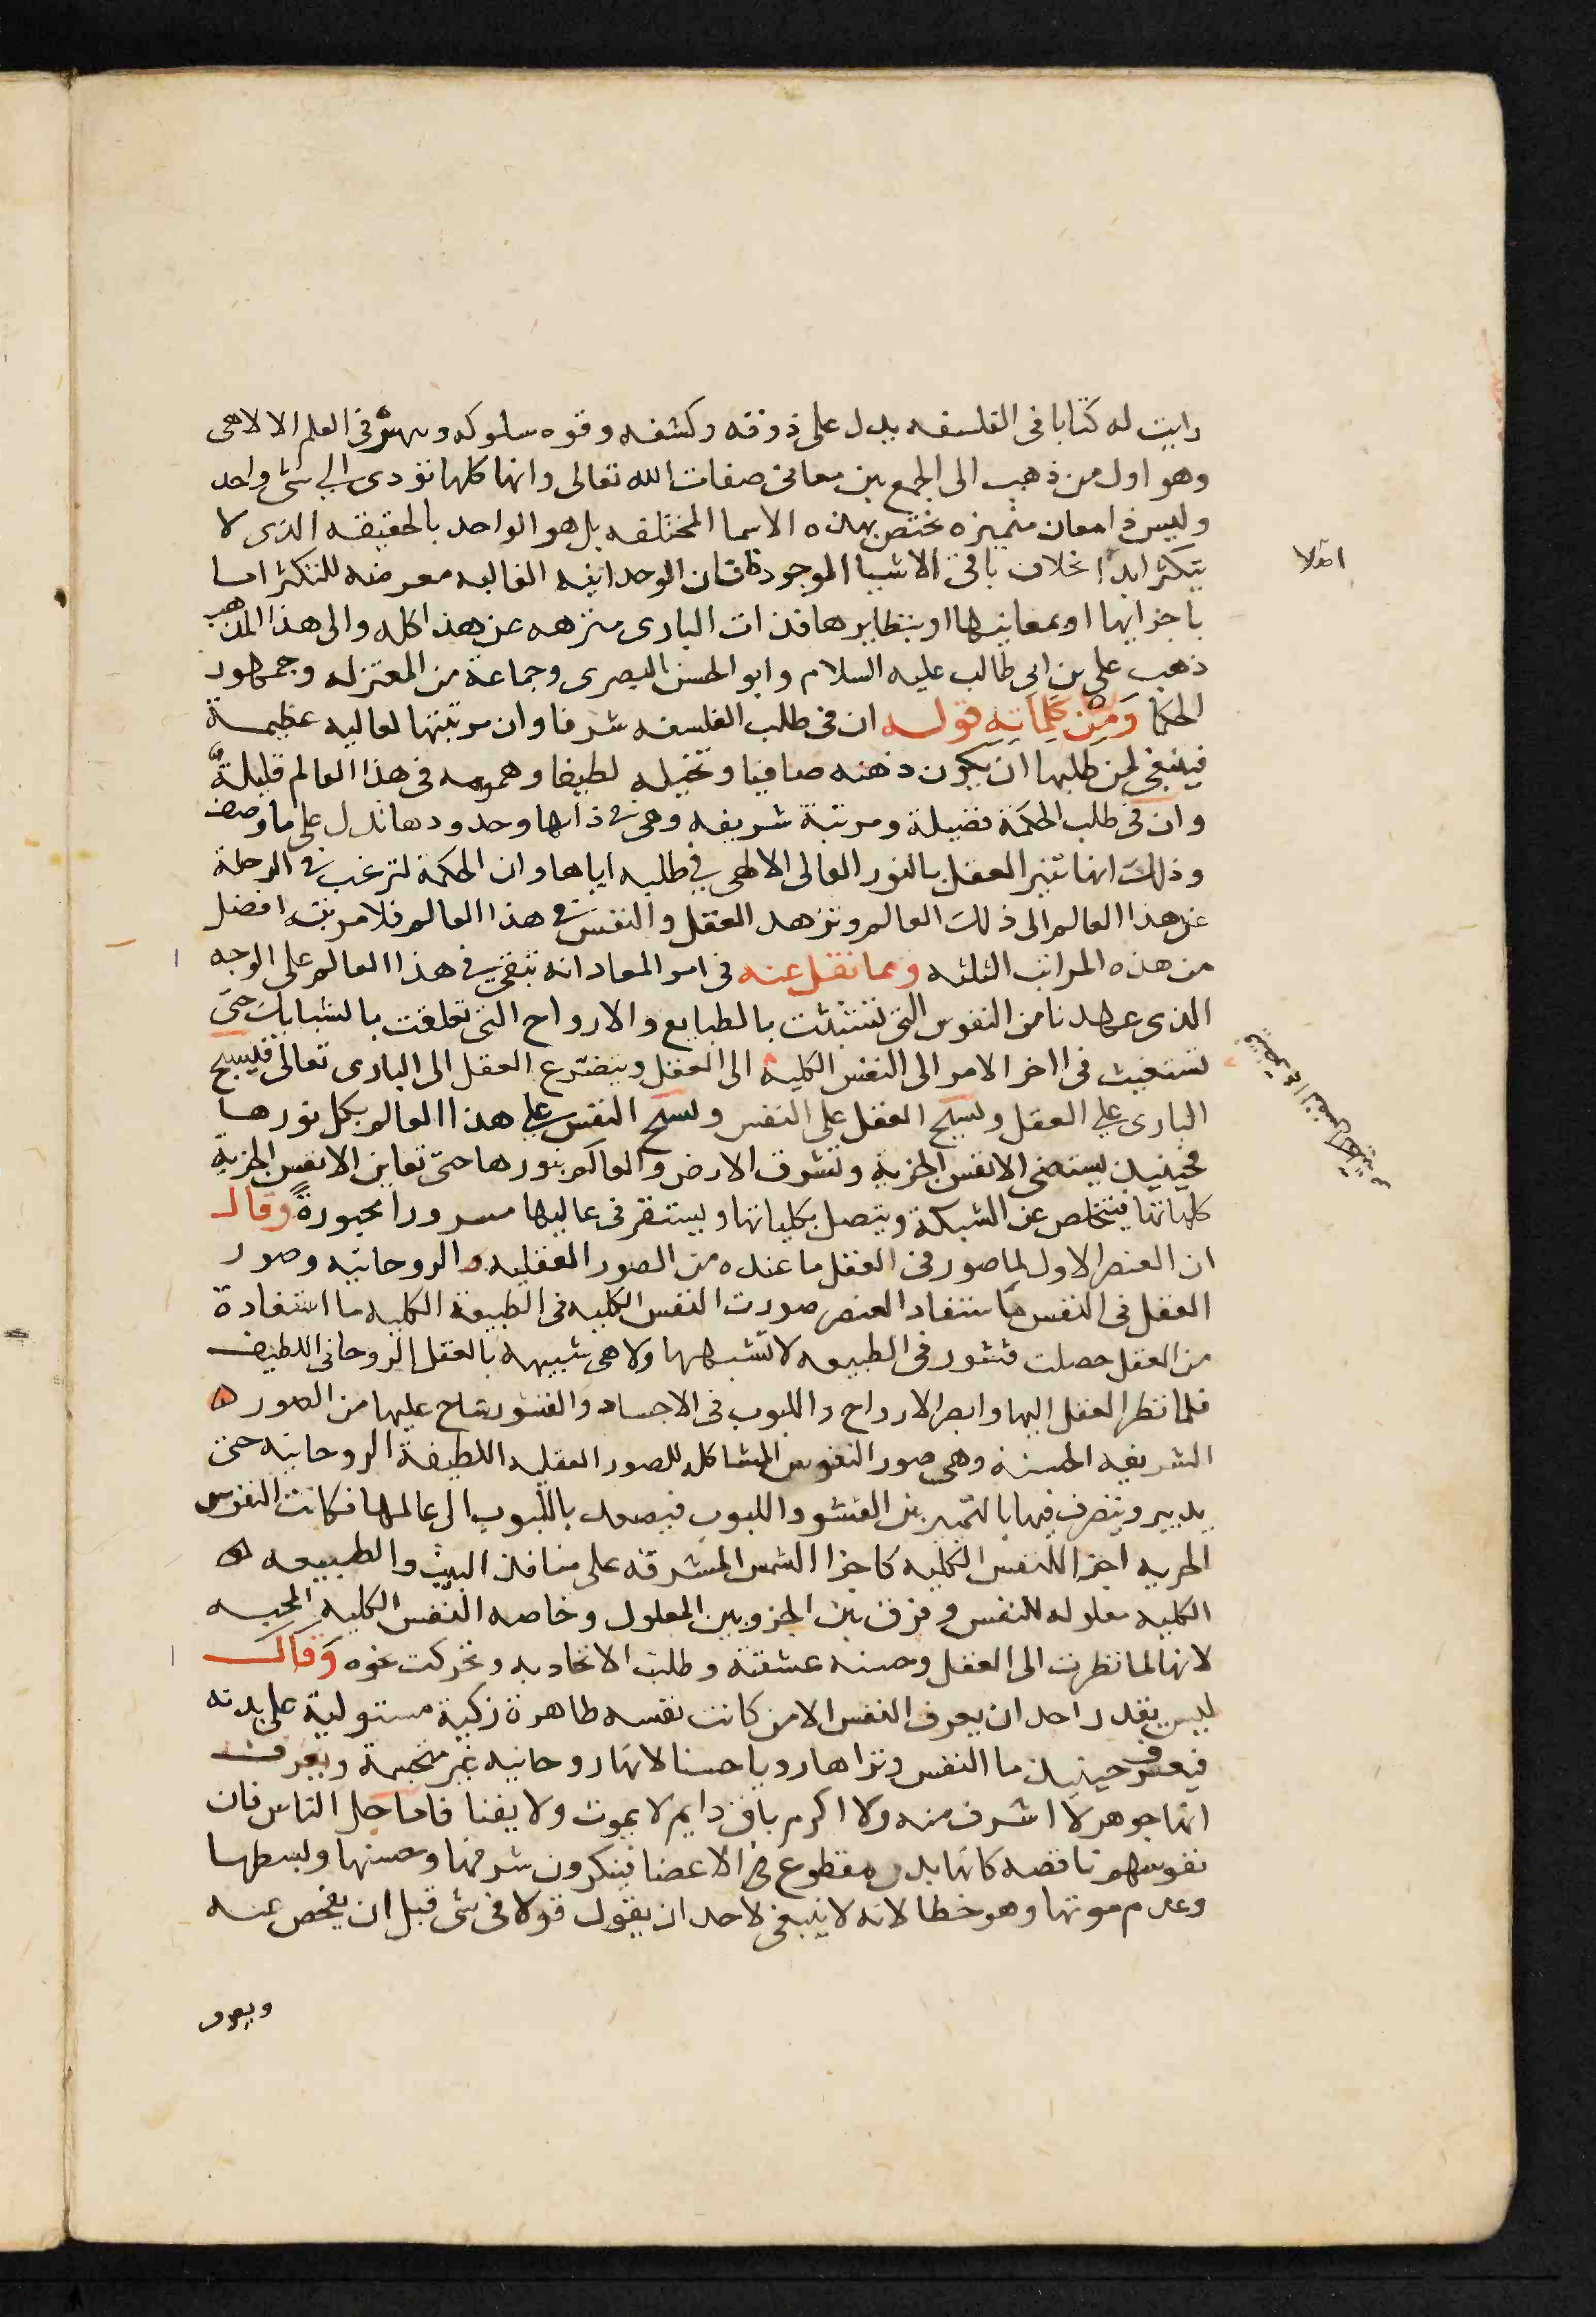 رايت له كتابا فى الفلسفه يدل على ذوقه وكشفه وقوه سلوكه و فى العلم الالاهى
وهو اول من ذهب الى الجمع بين معانى صفات الله تعالى وانها كلها تودى الى شى واحد
وليس ذا معان متميزه تختص بهذه الاسما المختلفه بل هو الواحد بالحقيقه الذى لا
يتكثر ابدا بخلاف باقى الاشيا الموجوده فان الوحدانيه الغالبه معرضه للتكثر اما
باجزايها او بمعانيها او بنظايرها فذات البارى منزهه عن هذا كله والى هذا المذهب
ذهب على بن ابى طالب عليه السلام وابو الحسن البصرى وجماعة من المعتزله وجمهور
الحكما وَمِن كَلِمَاتِه قوله ان فى طلب الفلسفه شرفا وان مرتبتها لعاليه عظيمة
فينبغى لمن طلبها ان يكون ذهنه صافيا وتخيله لطيفا وهمومه فى هذا العالم قليلةٌ
وان فى طلب الحكمة فضيلة ومرتبة شريفه وهى فى ذاتها وحدودها تدل على ما وصف
وذلك انها تنير العقل بالنور العالى الالهى فى طلبه اياها وان الحكمة لترغب فى الرحلة
عن هذا العالم الى ذلك العالم وتزهد العقل والنفس فى هذا العالم فلا مرتبه افضل
من هذه المراتب الثلثه ومما نقل عنه فى امر المعاد انه تبقى فى هذا العالم على الوجه
الذى عهدنا من النفوس التى تشبثت بالطبايع والارواح التى تعلقت بالشباك حتى
تستغيث فى اخر الامر الى النفس الكليه الى العقل ويتضرع العقل الى البارى تعالى فيسيح
البارى على العقل ويسيح العقل على النفس وتسيح النفس على هذا العالم بكل نورها
فحينيذ يستضى الانفس الجزية وتشرق الارض والعالم بنورها حتى تعاين الانفس الجزية
كلياتها فيتخلص عن الشبكة ويتصل بكلياتها ويستقر فى عاليها مسرورا محبورةً وقال
ان العنصر الاول لما صور فى العقل ما عنده من الصور العقليه والروحانيه وصور
العقل فى النفس ما استفاد العنصر صورت النفس الكليه فى الطبيعة الكليه ما استفادة
من العقل حصلت قشور فى الطبيعه لا تشبهها ولا هى شبيهة بالعقل الروحانى اللطيف
فلما نظر العقل اليها وابصر الارواح واللبوب فى الاجساد والقشور ساح عليها من الصور ه
الشريفه الحسنه وهى صور النفوس المشاكله للصور العقليه اللطيفة الروحانيه حتى
يدبير ويتصرف فيها بالتميز بين القشور واللبوب فيصعد باللبوب الى عالمها فكانت النفوس
الجزيه اجزا للنفس الكليه كاجزا الشمس المشرقه على منافذ البيت والطبيعه ه
الكليه معلوله للنفس وفرق بين الجزو بين المعلول وخاصه النفس الكليه المحبه
لانها لما نظرت الى العقل وحسنه عشقته وطلبت الاتحاد به وتحركت نحوه وَقال
ليس يقدر احد ان يعرف النفس الا من كانت نفسه طاهرة زكية مستولية على بدنه
فيعرف حينيذ ما النفس وتراها رويا حسنا لانها روحانيه غير متجسمة ويعرف
انها جوهر لا اشرف منه ولا اكرم باق دايم لا يموت ولا يفنا فاما جل الناس فان
نفوسهم ناقصه كانها بدن مقطوع فى الاعضا فينكرون شرفها وحسنها وبسطها
وعدم موتها وهو خطا لانه لا ينبغى لاحد ان يقول قولا فى شى قبل ان يفحص عنه